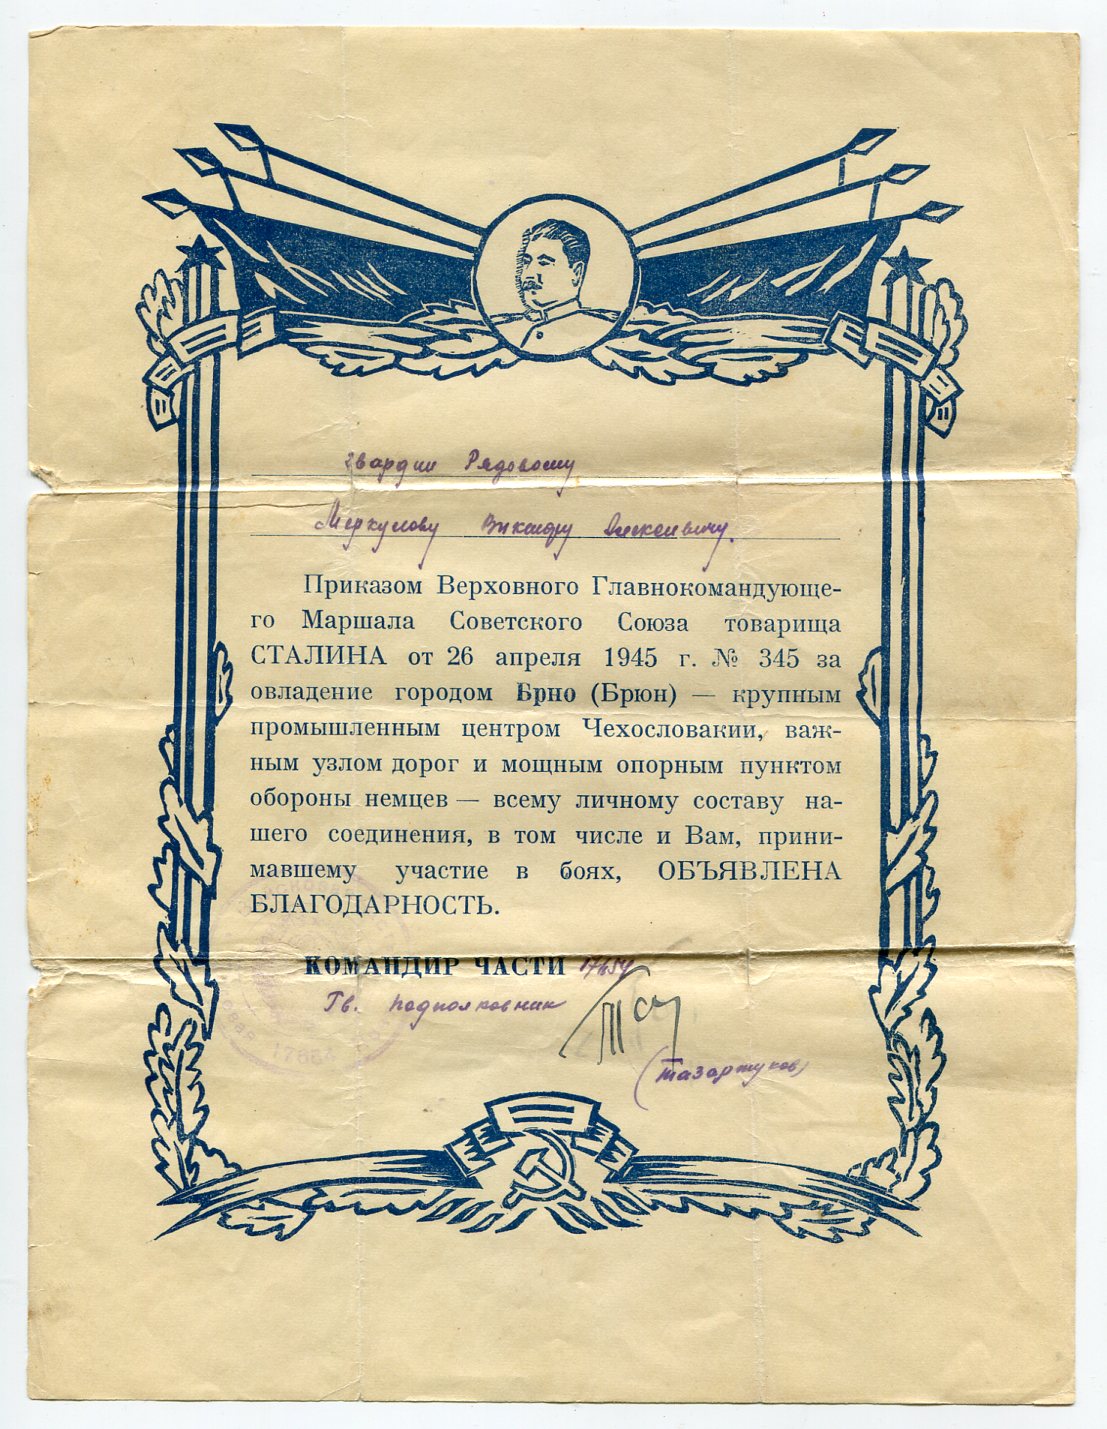 гвардии Рядовому
Меркулову Виктору Алексеевичу.
Приказом Верховного Главнокомандующе-
го Маршала Советского Союза товарища
СТАЛИНА от 26 апреля 1945 г. № 345 за
овладение городом Брно (Брюн) — крупным
промышленным центром Чехословакии, важ-
ным узлом дорог и мощным опорным пунктом
обороны немцев — всему личному составу на-
шего соединения, в том числе и Вам, прини-
мавшему участие в боях, ОБЪЯВЛЕНА
БЛАГОДАРНОСТЬ.
КОМАНДИР ЧАСТИ
Гв. подполковник